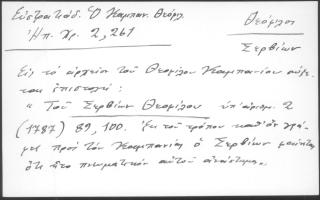 Εὐστρατιάδ. Ὁ Καμπαν. Θεόφιλ.
Ἠπ. Χρ. 2, 261
Θεόφιλος
Σερβίων
Εἰς τὸ ἀρχεῖον τοῦ Θεοφίλου Καμπανίας σώζε-
ται ἐπιστολή:
"Τοῦ Σερβίων Θεοφίλου ὑπ' ἀριθμ. 2
(1787) 89, 100. Ἐκ τοῦ τρόπου καθ' ὃν γρά-
φει πρὸς τὸν Καμπανίας ὁ Σερβίων
ὅτι ἦτο πνευματικὸν αὐτοῦ ἀνάστημα."